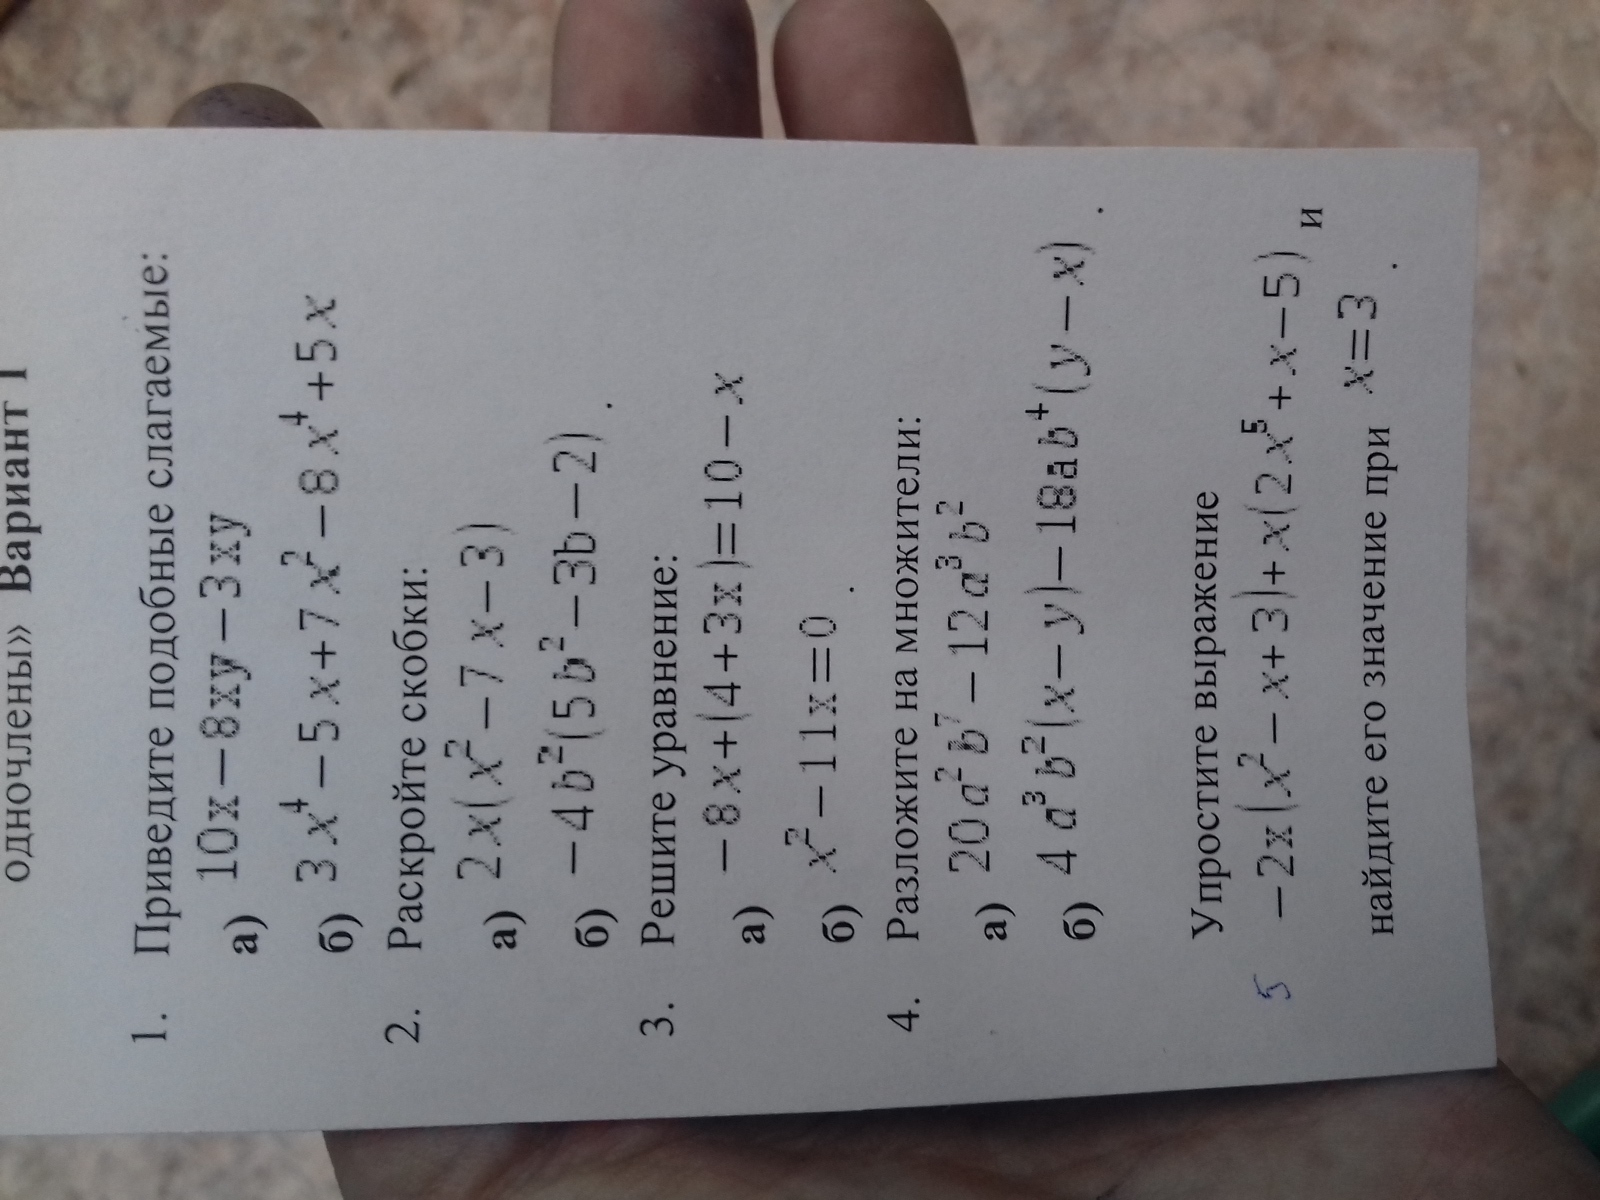 одночлены» Вариант 1
1. Приведите подобные слагаемые:
а) 10x−8xy−3xy
б) 3x⁴−5x+7x²−8x⁴+5x
2. Раскройте скобки:
а) 2x(x²−7x−3)
б) −4b²(5b²−3b−2).
3. Решите уравнение:
а) −8x+(4+3x)=10−x
б) x²−11x=0.
4. Разложите на множители:
а) 20a²b⁷−12a³b²
б) 4a³b²(x−y)−18ab⁴(y−x).
Упростите выражение
5 −2x(x²−x+3)+x(2x⁵+x−5) и
найдите его значение при x=3.